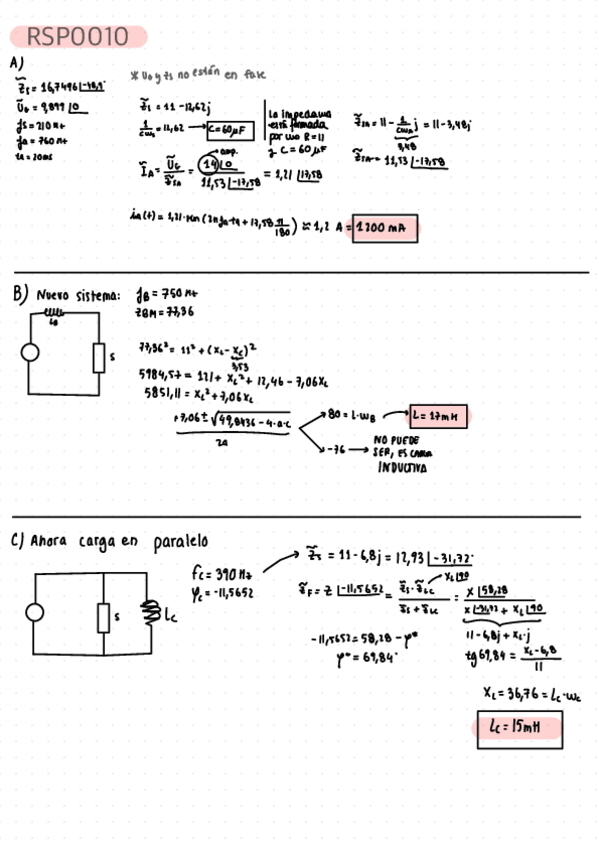 RSP0010
A)
* U₀ y Zs no están en fase
Z̃s = 16,7496 |-48,9°
Ũ₀ = 9,899 |0
fs = 210 Hz
fa = 760 Hz
ta = 20ms
Z̃s = 11 - 12,62j
1/cωs = 12,62 → C = 60μF
La impedancia
está formada
por una R = 11
y C = 60μF
Z̃sa = 11 - 1/cωa j = 11 - 3,48j
3,48
Z̃sa = 11,53 |-17,58
amp.
ĨA = Ũ₀/Z̃sa = 14|0 / 11,53 |-17,58 = 1,21 |17,58
ia(t) = 1,21·sen(2πfa·ta + 17,58 π/180) ≈ 1,2 A = 1200 mA
B) Nuevo sistema:
fB = 750 Hz
ZBM = 77,36
LB
S
77,36² = 11² + (XL - Xc)²
3,53
5984,57 = 121 + XL² + 12,46 - 7,06XL
5851,11 = XL² + 7,06XL
+7,06 ± √49,8436 - 4·a·c
2a
80 = L·ωB → L = 17mH
-76 → NO PUEDE
SER, ES CARGA
INDUCTIVA
C) Ahora carga en paralelo
S
Lc
fc = 390 Hz
φc = -11,5652
Z̃s = 11 - 6,8j = 12,93 |-31,72°
Z̃F = Z |-11,5652 = Z̃s·Z̃Lc / Z̃s + Z̃Lc = X |58,28 / X |-31,72 + XL |90
XL|90
11 - 6,8j + XL·j
-11,5652 = 58,28 - φ*
φ* = 69,84°
tg 69,84 = XL - 6,8 / 11
XL = 36,76 = Lc·ωc
Lc = 15mH